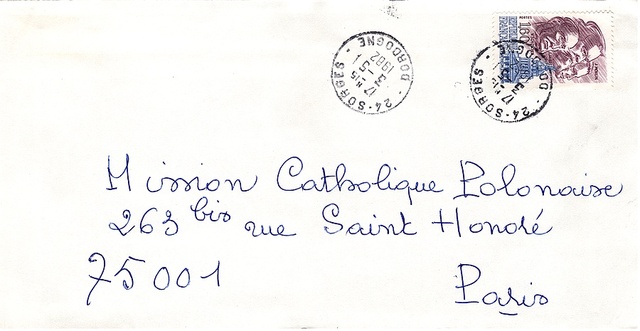 24-SORGES - DORDOGNE
17 H15
3 -5
1982
24-SORGES
17 H15
1,80
POSTES
Mission Catholique Polonaise
263 bis rue Saint Honoré
75001
Paris